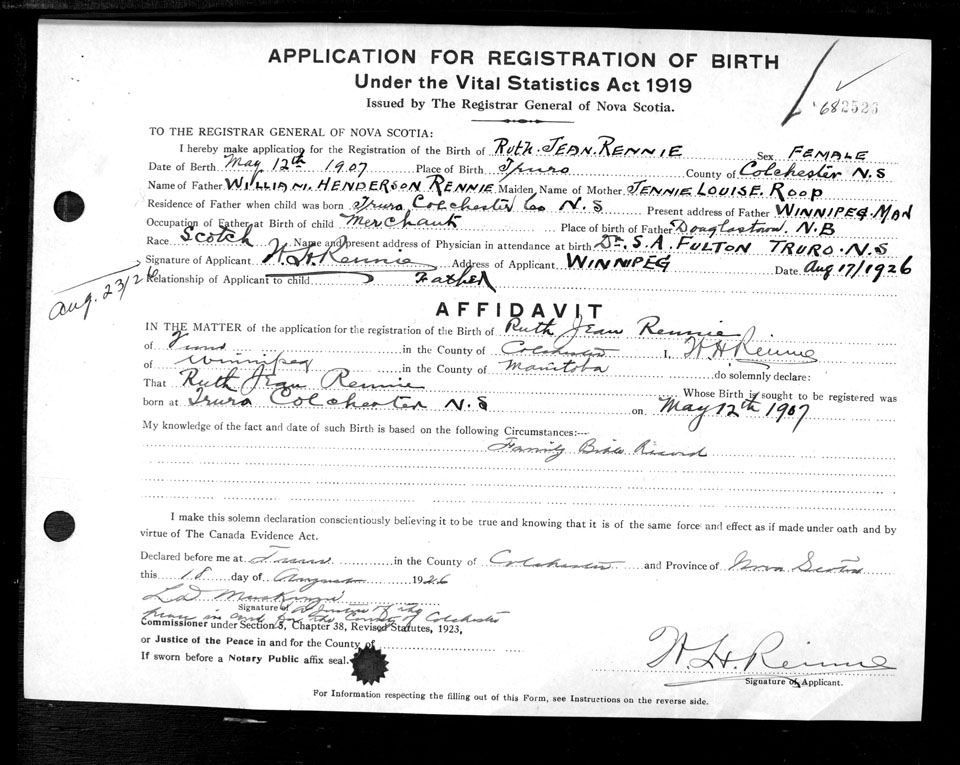 APPLICATION FOR REGISTRATION OF BIRTH
Under the Vital Statistics Act 1919
Issued by The Registrar General of Nova Scotia.
682526
TO THE REGISTRAR GENERAL OF NOVA SCOTIA:
I hereby make application for the Registration of the Birth of RUTH JEAN RENNIE Sex FEMALE
Date of Birth May 12th 1907 Place of Birth Truro County of Colchester N.S
Name of Father WILLIAM HENDERSON RENNIE Maiden Name of Mother JENNIE LOUISE ROOP
Residence of Father when child was born Truro Colchester Co N.S Present address of Father WINNIPEG MAN
Occupation of Father at Birth of child Merchant Place of birth of Father Douglastown N.B
Race Scotch Name and present address of Physician in attendance at birth Dr. S. A. FULTON TRURO N.S
Signature of Applicant W. H. Rennie Address of Applicant WINNIPEG Date Aug 17/1926
Aug. 23/26
Relationship of Applicant to child Father
AFFIDAVIT
IN THE MATTER of the application for the registration of the Birth of Ruth Jean Rennie
of Truro in the County of Colchester I, W H Rennie
of Winnipeg in the County of Manitoba do solemnly declare:
That Ruth Jean Rennie Whose Birth is sought to be registered was
born at Truro Colchester N.S on May 12th 1907
My knowledge of the fact and date of such Birth is based on the following Circumstances:—
Family Bible Record
I make this solemn declaration conscientiously believing it to be true and knowing that it is of the same force and effect as if made under oath and by
virtue of The Canada Evidence Act.
Declared before me at Truro in the County of Colchester and Province of Nova Scotia
this 18 day of August 1926
Signature of a Justice of the
peace in and for the County of Colchester
Commissioner under Section 3, Chapter 38, Revised Statutes, 1923,
or Justice of the Peace in and for the County of
If sworn before a Notary Public affix seal.
W. H. Rennie
Signature of Applicant.
For Information respecting the filling out of this Form, see Instructions on the reverse side.